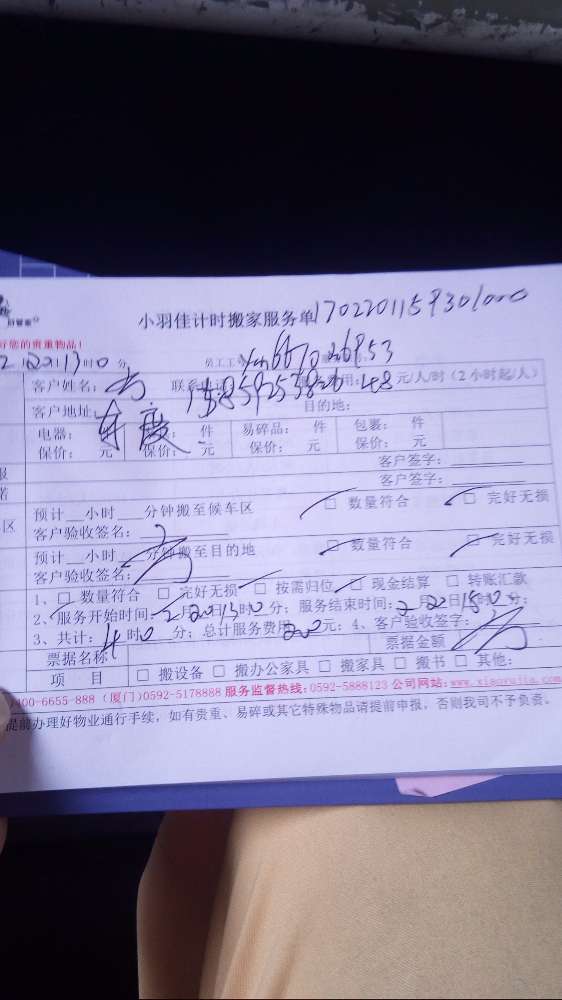 小羽佳计时搬家服务单
好您的贵重物品！
客户姓名： 联系电话 费用：48元/人/时（2小时起/人）
客户地址 目的地：
电器： 件 件 易碎品： 件 包裹： 件
保价： 元 保价： 元 保价： 元 保价： 元
客户签字：
客户签字：
区 预计 小时 分钟搬至候车区 □ 数量符合 □ 完好无损
客户验收签名：
预计 小时 分钟搬至目的地 □ 数量符合 □ 完好无损
客户验收签名：
1、□ 数量符合 □ 完好无损 □ 按需归位 □ 现金结算 □ 转账汇款
2、服务开始时间：2月20日13时0分；服务结束时间：2月20日15时0分；
3、共计：4时0分；总计服务费用200元；4、客户验收签字：
票据名称 票据金额
项 目 □ 搬设备 □ 搬办公家具 □ 搬家具 □ 搬书 □ 其他：
400-6655-888 (厦门)0592-5178888 服务监督热线：0592-5888123 公司网站：www.xiaoyujia.com
提前办理好物业通行手续，如有贵重、易碎或其它特殊物品请提前申报，否则我司不予负责。